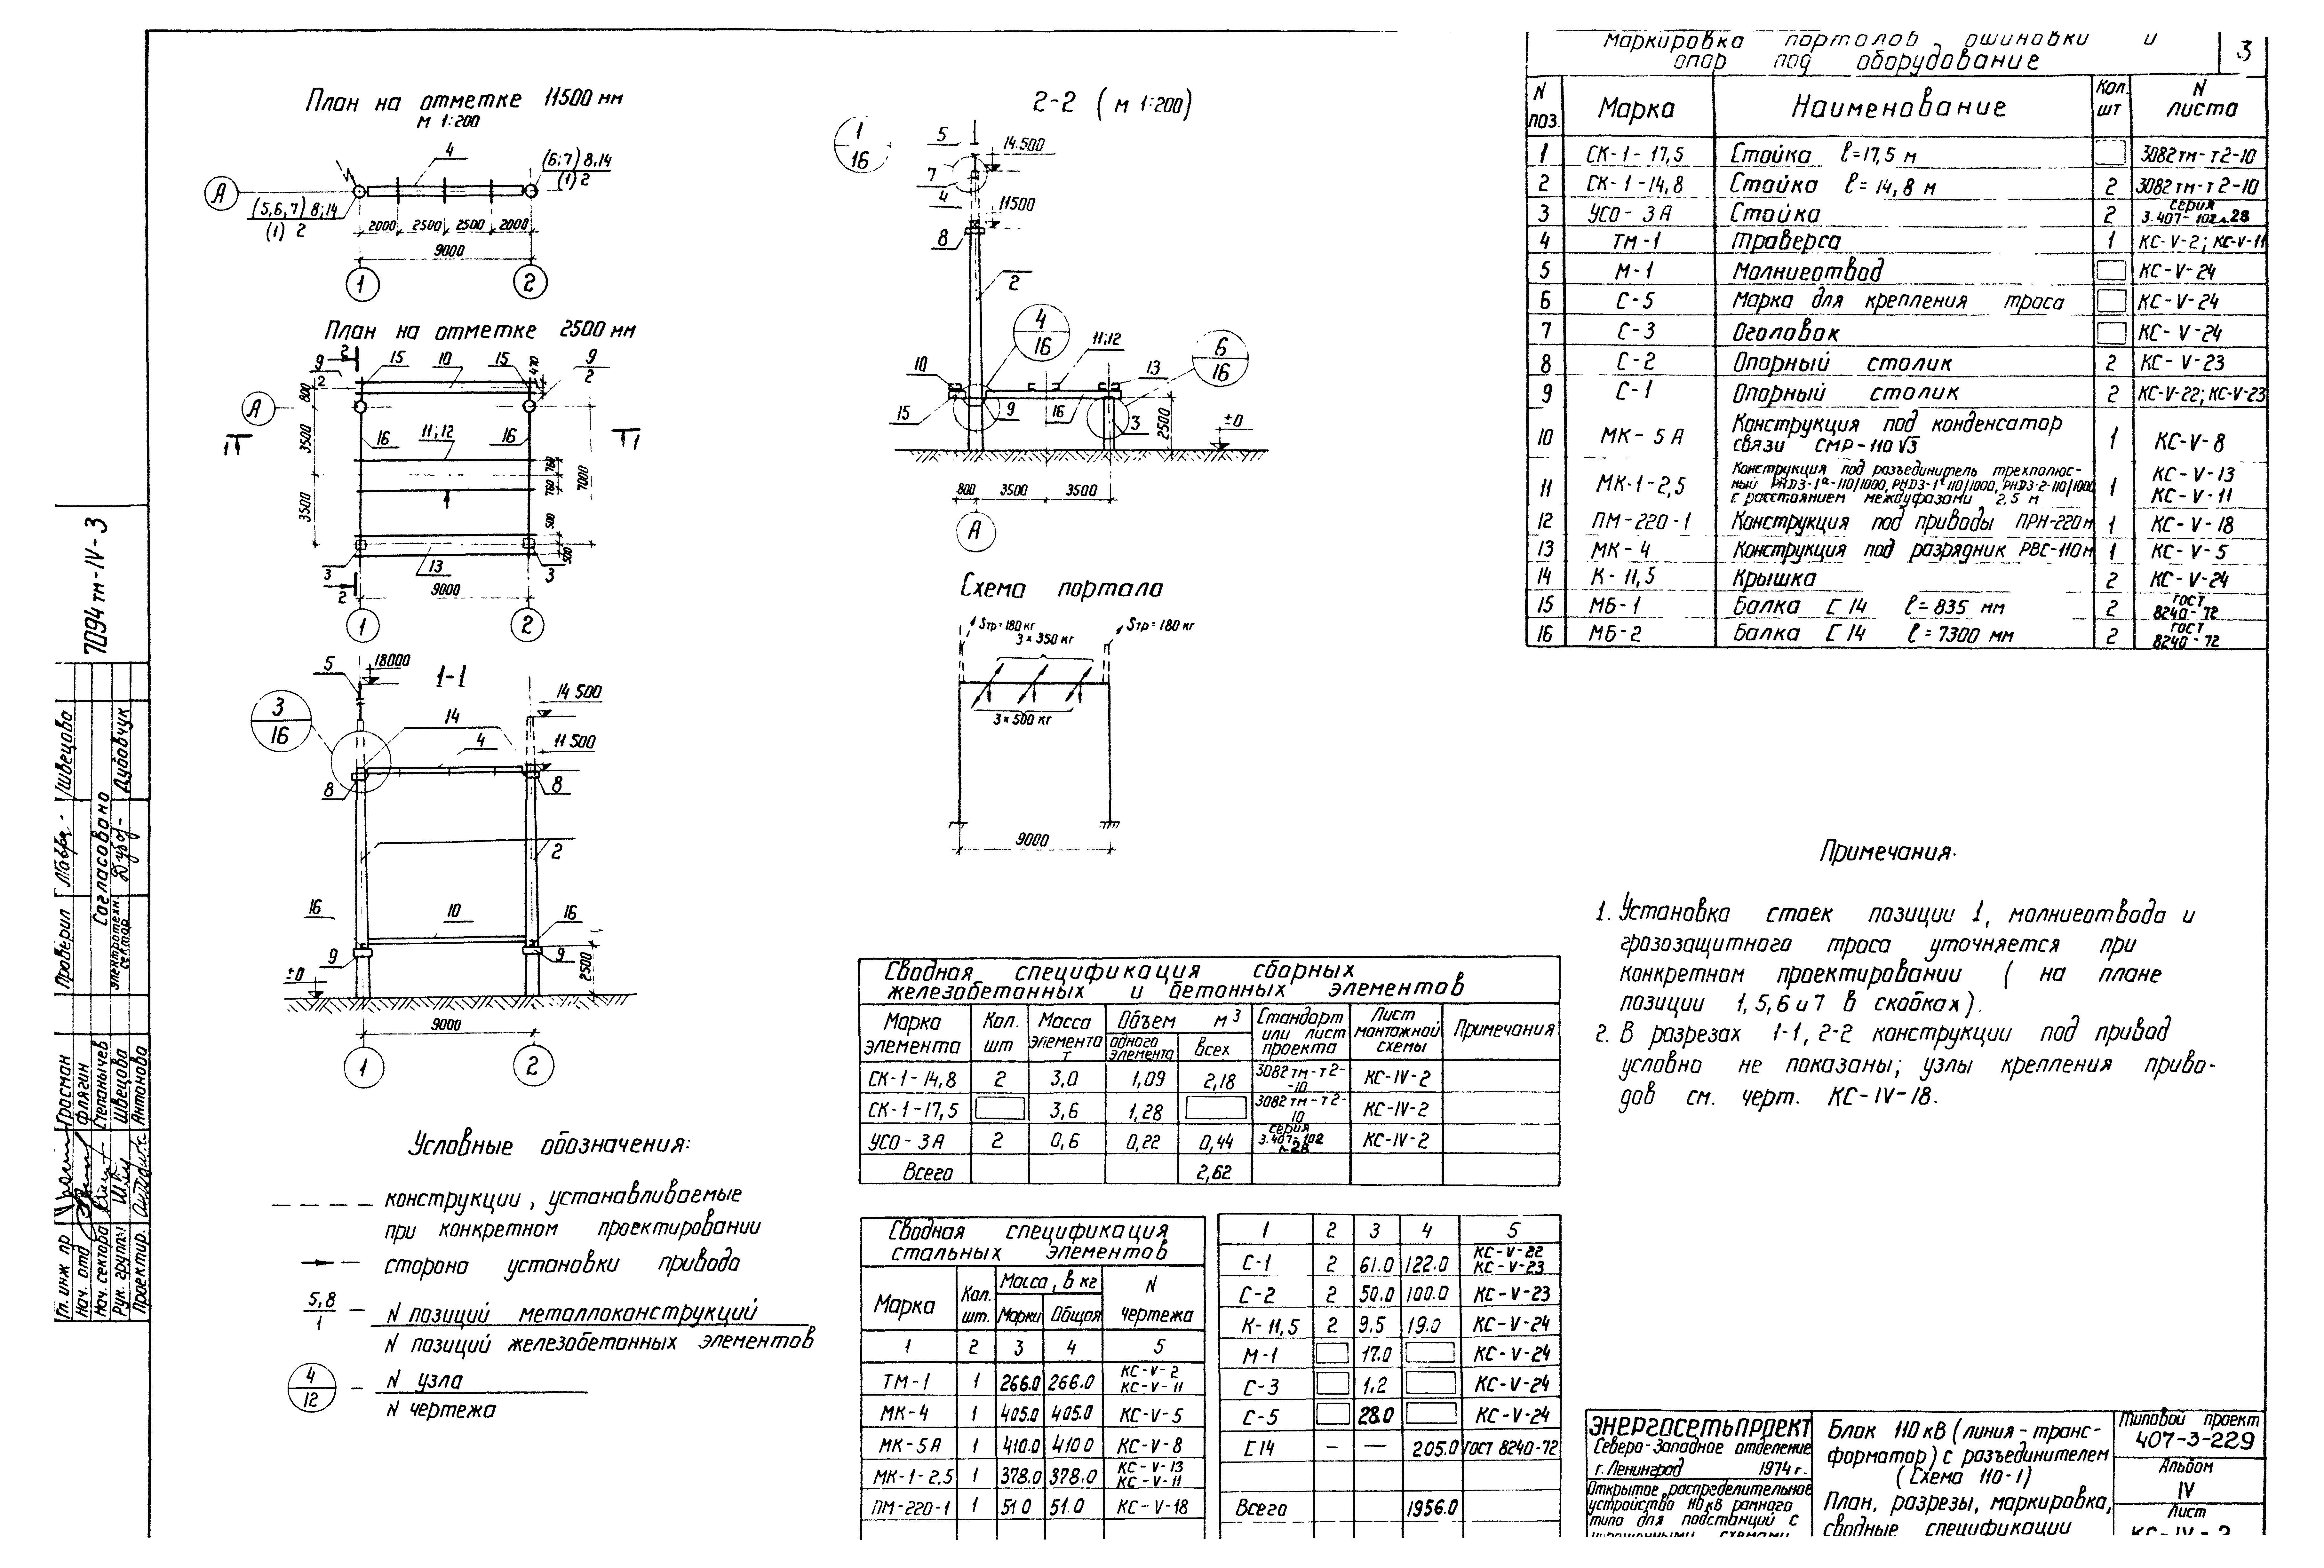 План на отметке 11500 мм
М 1:200
4
(6;7) 8,14
(1) 2
А
(5,6,7) 8;14
(1) 2
2000 2500 2500 2000
9000
1 2
План на отметке 2500 мм
9 2 15 10 15 470 9
2 2
800
А
3500
16 11;12 16
1 1
760
760
7000
3500
500
500
3 13 3
2
9000
1 2
1-1
5 18000
3
16
14
14 500
4 11 500
8 8
2
16 10 16
9 9
2500
±0
9000
1 2
Условные обозначения:
конструкции, устанавливаемые
при конкретном проектировании
сторона установки привода
5,8
1
– N позиций металлоконструкций
N позиций железобетонных элементов
4
12
– N узла
N чертежа
2-2 (м 1:200)
1
16
5
14.500
7
4
11500
8
2
4
16
6
16
10 11;12 13
15 9 16 3
2500
±0
800 3500 3500
А
Схема портала
Sтр=180 кг Sтр=180 кг
3 × 350 кг
3 × 500 кг
9000
Сводная спецификация сборных
железобетонных и бетонных элементов
Марка элемента Кол. шт Масса элемента т Объем м3 одного элемента всех Стандарт или лист проекта Лист монтажной схемы Примечания
СК-1-14,8 2 3,0 1,09 2,18 3082тм-т2-10 КС-IV-2
СК-1-17,5 3,6 1,28 3082тм-т2-10 КС-IV-2
УСО-3А 2 0,6 0,22 0,44 серия 3.407-102 л.28 КС-IV-2
Всего 2,62
Сводная спецификация
стальных элементов
Марка Кол. шт. Масса, в кг Марки Общая N чертежа
1 2 3 4 5
ТМ-1 1 266.0 266.0 КС-V-2 КС-V-11
МК-4 1 405.0 405.0 КС-V-5
МК-5А 1 410.0 410 0 КС-V-8
МК-1-2,5 1 378.0 378.0 КС-V-13 КС-V-11
ПМ-220-1 1 51 0 51.0 КС-V-18
1 2 3 4 5
С-1 2 61.0 122.0 КС-V-22 КС-V-23
С-2 2 50.0 100.0 КС-V-23
К-11,5 2 9.5 19.0 КС-V-24
М-1 17.0 КС-V-24
С-3 1.2 КС-V-24
С-5 28.0 КС-V-24
[14 – — 205.0 ГОСТ 8240-72
Всего 1956.0
Маркировка порталов ошиновки и
опор под оборудование
3
N поз. Марка Наименование Кол. шт N листа
1 СК-1-17,5 Стойка ℓ=17,5 м 3082тм-т2-10
2 СК-1-14,8 Стойка ℓ=14,8 м 2 3082тм-т2-10
3 УСО-3А Стойка 2 серия 3.407-102л.28
4 ТМ-1 Траверса 1 КС-V-2; КС-V-11
5 М-1 Молниеотвод КС-V-24
6 С-5 Марка для крепления троса КС-V-24
7 С-3 Оголовок КС-V-24
8 С-2 Опорный столик 2 КС-V-23
9 С-1 Опорный столик 2 КС-V-22; КС-V-23
10 МК-5А Конструкция под конденсатор
связи СМР-110√3 1 КС-V-8
11 МК-1-2,5 Конструкция под разъединитель трехполюс-
ный РНДЗ-1а-110/1000, РНДЗ-1 110/1000, РНДЗ-2-110/1000
с расстоянием между фазами 2,5 м 1 КС-V-13 КС-V-11
12 ПМ-220-1 Конструкция под приводы ПРН-220м 1 КС-V-18
13 МК-4 Конструкция под разрядник РВС-110м 1 КС-V-5
14 К-11,5 Крышка 2 КС-V-24
15 МБ-1 Балка [14 ℓ=835 мм 2 ГОСТ 8240-72
16 МБ-2 Балка [14 ℓ=7300 мм 2 ГОСТ 8240-72
Примечания.
1. Установка стоек позиции 1, молниеотвода и
грозозащитного троса уточняется при
конкретном проектировании (на плане
позиции 1,5,6 и 7 в скобках).
2. В разрезах 1-1, 2-2 конструкции под привод
условно не показаны; узлы крепления приво-
дов см. черт. КС-IV-18.
ЭНЕРГОСЕТЬПРОЕКТ
Северо-Западное отделение
г. Ленинград 1974 г.
Открытое распределительное
устройство 110кВ рамного
типа для подстанций с
упрощенными схемами
Блок 110 кВ (линия-транс-
форматор) с разъединителем
(Схема 110-1)
План, разрезы, маркировка,
сводные спецификации
Типовой проект
407-3-229
Альбом
IV
Лист
КС-IV-2
7094тм-IV-3
Проверил Швецова
Согласовано
Электротехн. сектор Дудавчук
Гл. инж пр Грасман
Нач. отд Флягин
Нач. сектора Степанычев
Рук. группы Швецова
Проектир. Антонова